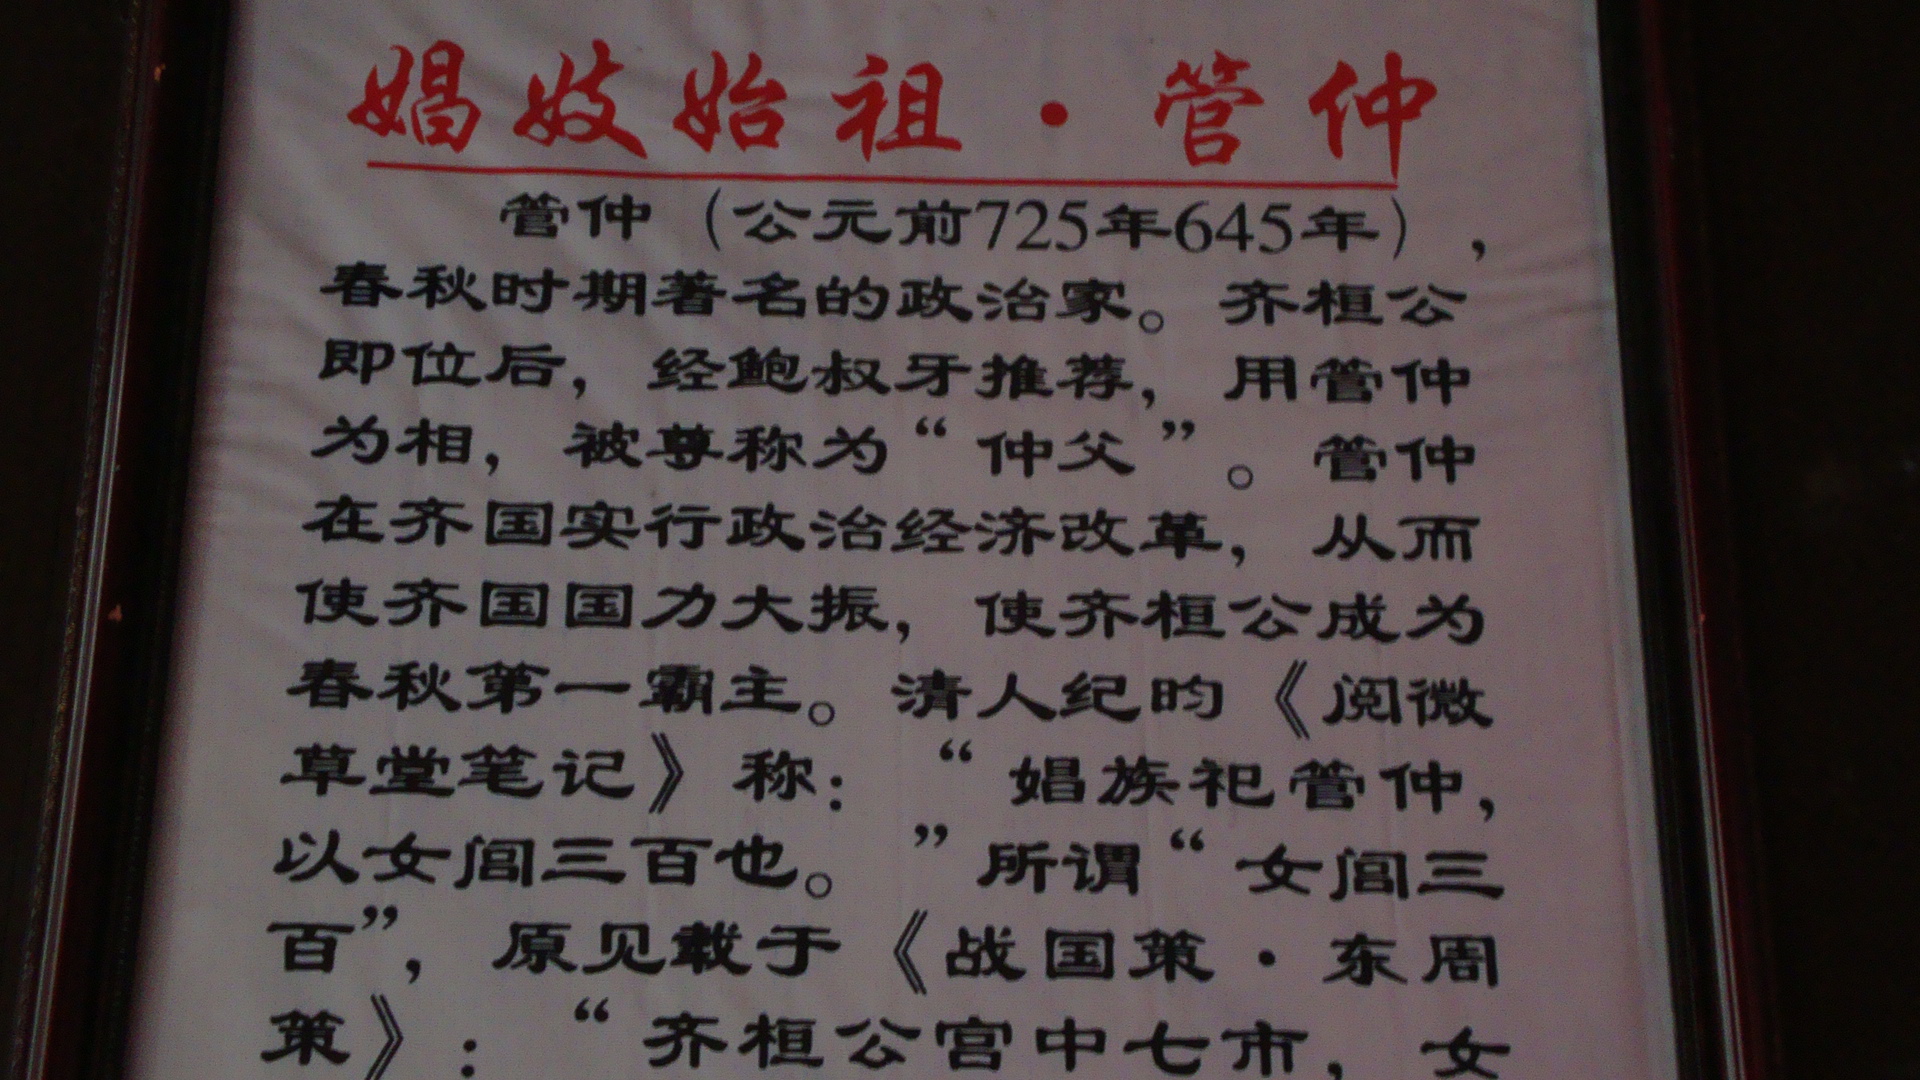 娼妓始祖·管仲
管仲（公元前725年645年），
春秋时期著名的政治家。齐桓公
即位后，经鲍叔牙推荐，用管仲
为相，被尊称为“仲父”。管仲
在齐国实行政治经济改革，从而
使齐国国力大振，使齐桓公成为
春秋第一霸主。清人纪昀《阅微
草堂笔记》称：“娼族祀管仲，
以女闾三百也。”所谓“女闾三
百”，原见载于《战国策·东周
策》：“齐桓公宫中七市，女